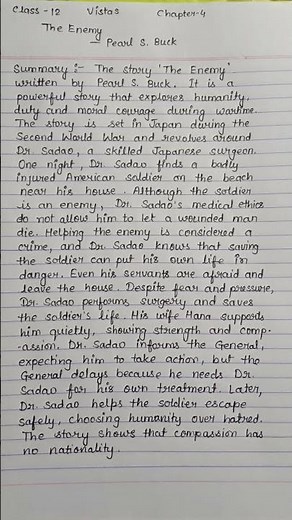 Class - 12 Vistas Chapter-4
The Enemy
- Pearl S. Buck
Summary :- The story 'The Enemy'
written by Pearl S. Buck. It is a
powerful story that explores humanity,
duty and moral courage during wartime.
The story is set in Japan during the
Second World War and revolves around
Dr. Sadao, a skilled Japanese surgeon.
One night, Dr. Sadao finds a badly
injured American soldier on the beach
near his house. Although the soldier
is an enemy, Dr. Sadao's medical ethics
do not allow him to let a wounded man
die. Helping the enemy is considered a
crime, and Dr. Sadao knows that saving
the soldier can put his own life in
danger. Even his servants are afraid and
leave the house. Despite fear and pressure,
Dr. Sadao performs surgery and saves
the soldier's life. His wife Hana supports
him quietly, showing strength and comp-
-assion. Dr. Sadao informs the General,
expecting him to take action, but the
General delays because he needs Dr.
Sadao for his own treatment. Later,
Dr. Sadao helps the soldier escape
safely, choosing humanity over hatred.
The story shows that compassion has
no nationality.